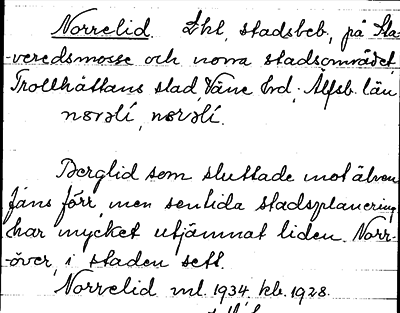 Norrelid. Lht, stadsbeb, på Sta-
veredsmosse och norra stadsområdet,
Trollhättans stad, Väne hd. Älfsb. län
Berglid som sluttade mot älven
fans förr, men sentida stadsplanering
har mycket utjämnat liden. Norr-
över, i staden sett.
Norrelid ml. 1934. kb. 1928.